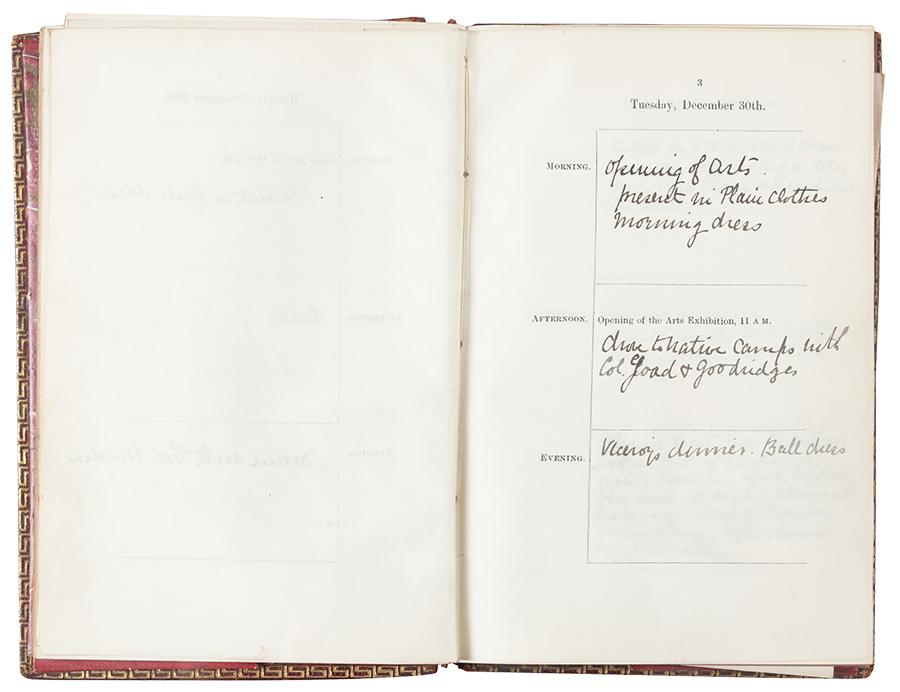 3
Tuesday, December 30th.
MORNING.
Opening of Arts.
present in Plain clothes
Morning dress
AFTERNOON.
Opening of the Arts Exhibition, 11 A.M.
drove to native camps with
Col. Goad & Goodridges
EVENING.
Viceroys dinner. Ball dress